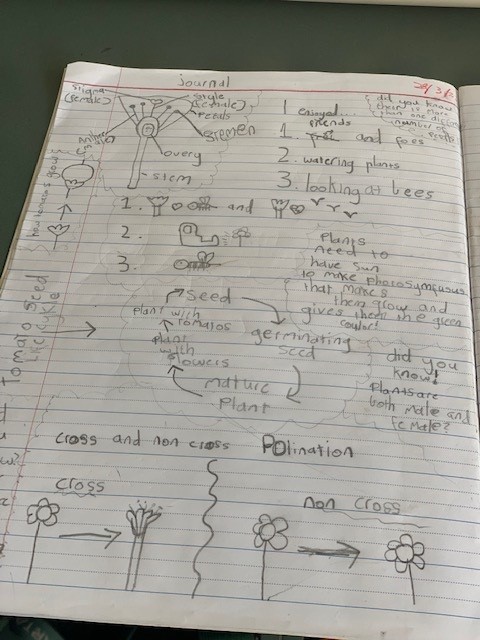 journal
stigma
(female)
style
(female)
Petals
overy
stem
I enjoyed...
did you know
than one
number of
1. friends and foes
2. watering plants
3. looking at bees
1. and
2.
3.
Plants
need to
have sun
to make photosymfusus
that makes
them grow and
gives them the green
Tomato seed
life cycle
seed
germinating
seed
mature
Plant
Plant
with
flowers
plant with
tomatos
did you
know!
Plants are
both male and
female?
cross and non cross Polination
cross
non cross